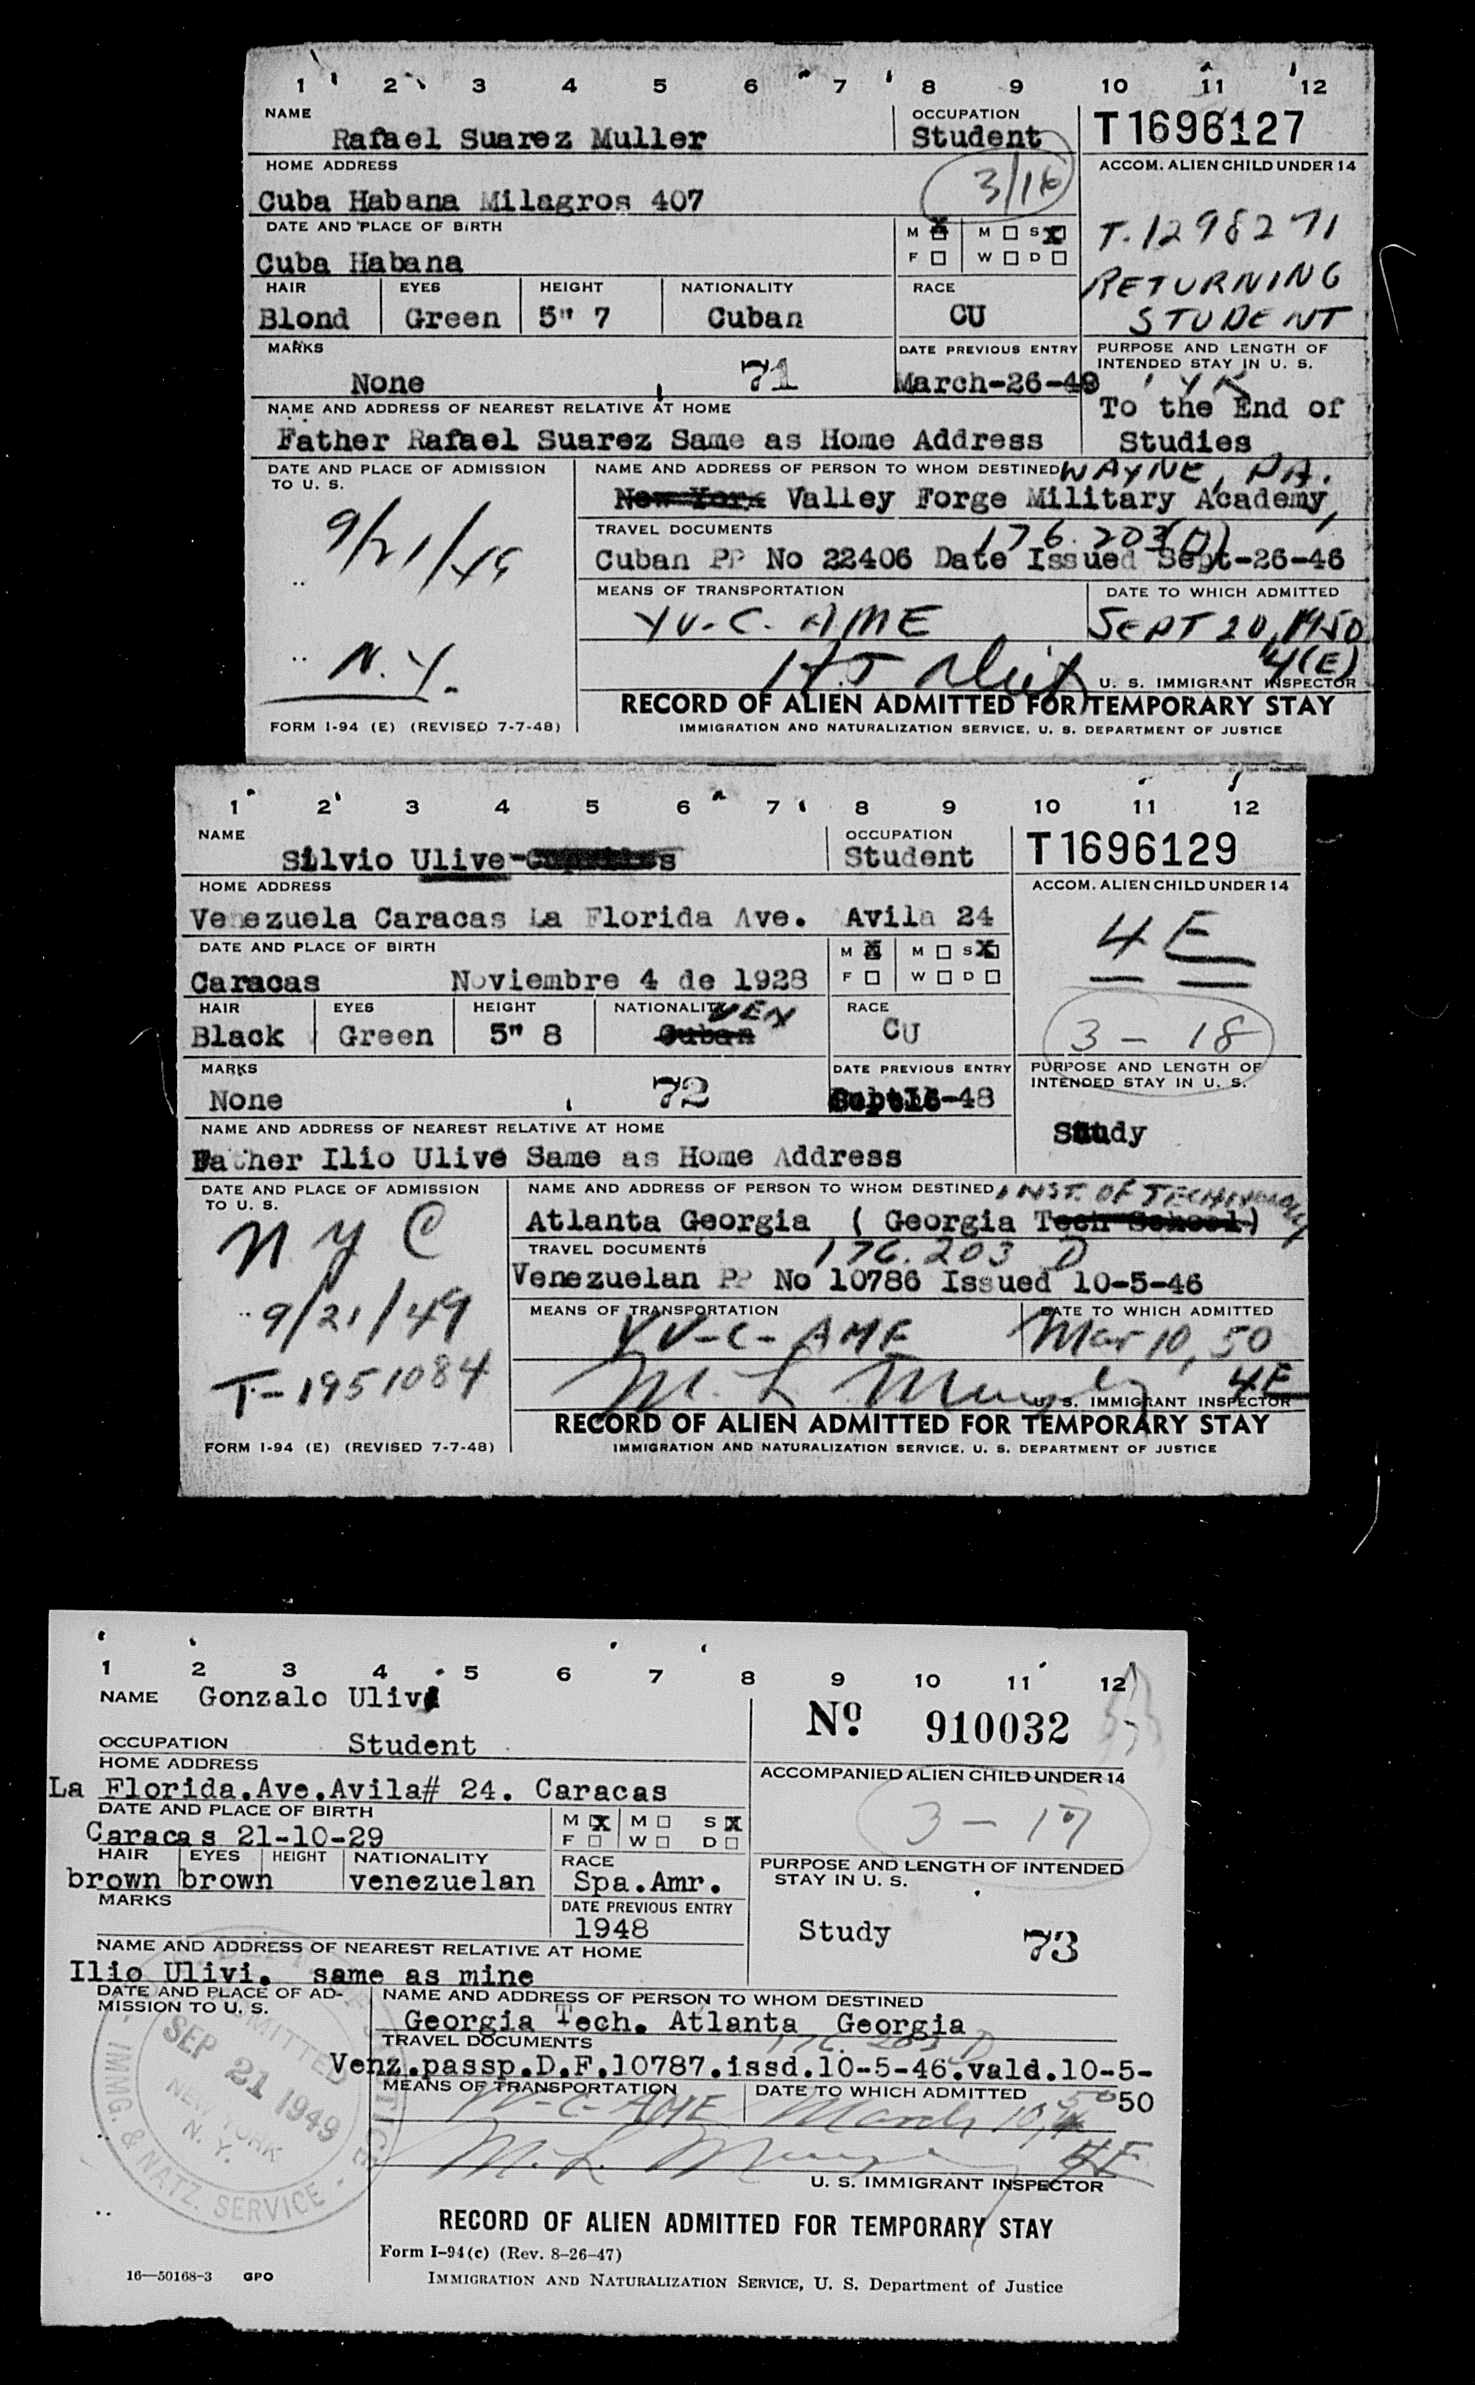 1 2 3 4 5 6 7 8 9 10 11 12
NAME OCCUPATION T1696127
Rafael Suarez Muller Student
HOME ADDRESS 3/16 ACCOM. ALIEN CHILD UNDER 14
Cuba Habana Milagros 407
DATE AND PLACE OF BIRTH M X M S X T-1298271
Cuba Habana F W D
HAIR EYES HEIGHT NATIONALITY RACE RETURNING
Blond Green 5" 7 Cuban CU STUDENT
MARKS DATE PREVIOUS ENTRY PURPOSE AND LENGTH OF
INTENDED STAY IN U. S.
None 71 March-26-49 1 YR
NAME AND ADDRESS OF NEAREST RELATIVE AT HOME To the End of
Father Rafael Suarez Same as Home Address Studies
DATE AND PLACE OF ADMISSION NAME AND ADDRESS OF PERSON TO WHOM DESTINED WAYNE, PA.
TO U. S.
New York Valley Forge Military Academy,
9/21/49 TRAVEL DOCUMENTS 176.203(D)
Cuban PP No 22406 Date Issued Sept-26-46
MEANS OF TRANSPORTATION DATE TO WHICH ADMITTED
YV-C-AME SEPT 20, 1950
N.Y. 4(E)
U. S. IMMIGRANT INSPECTOR
RECORD OF ALIEN ADMITTED FOR TEMPORARY STAY
FORM I-94 (E) (REVISED 7-7-48) IMMIGRATION AND NATURALIZATION SERVICE, U. S. DEPARTMENT OF JUSTICE
1 2 3 4 5 6 7 8 9 10 11 12
NAME OCCUPATION T1696129
Silvio Ulive- Student
HOME ADDRESS ACCOM. ALIEN CHILD UNDER 14
Venezuela Caracas La Florida Ave. Avila 24 4 E
DATE AND PLACE OF BIRTH M X M S X
Caracas Noviembre 4 de 1928 F W D
HAIR EYES HEIGHT NATIONALITY VEN RACE
Black Green 5" 8 Cuban CU 3 - 18
MARKS DATE PREVIOUS ENTRY PURPOSE AND LENGTH OF
INTENDED STAY IN U. S.
None 72 -48
NAME AND ADDRESS OF NEAREST RELATIVE AT HOME Study
Father Ilio Ulive Same as Home Address
DATE AND PLACE OF ADMISSION NAME AND ADDRESS OF PERSON TO WHOM DESTINED INST. OF TECHNOLOGY
TO U. S.
N Y C Atlanta Georgia ( Georgia Tech School)
TRAVEL DOCUMENTS 176.203 D
Venezuelan PP No 10786 Issued 10-5-46
9/21/49 MEANS OF TRANSPORTATION DATE TO WHICH ADMITTED
YV-C-AME Mar 10, 50
T-1951084 M. L. Murphy 4E
U. S. IMMIGRANT INSPECTOR
RECORD OF ALIEN ADMITTED FOR TEMPORARY STAY
FORM I-94 (E) (REVISED 7-7-48) IMMIGRATION AND NATURALIZATION SERVICE, U. S. DEPARTMENT OF JUSTICE
1 2 3 4 5 6 7 8 9 10 11 12
NAME Gonzalo Ulivi
Nº 910032
OCCUPATION Student
HOME ADDRESS ACCOMPANIED ALIEN CHILD UNDER 14
La Florida.Ave.Avila# 24. Caracas
DATE AND PLACE OF BIRTH M X M S X 3 - 17
Caracas 21-10-29 F W D
HAIR EYES HEIGHT NATIONALITY RACE PURPOSE AND LENGTH OF INTENDED
STAY IN U. S.
brown brown venezuelan Spa.Amr.
MARKS DATE PREVIOUS ENTRY
1948 Study 73
NAME AND ADDRESS OF NEAREST RELATIVE AT HOME
Ilio Ulivi. same as mine
DATE AND PLACE OF AD- NAME AND ADDRESS OF PERSON TO WHOM DESTINED
MISSION TO U. S.
Georgia Tech. Atlanta Georgia
TRAVEL DOCUMENTS 176.203 D
Venz.passp.D.F.10787.issd.10-5-46.vald.10-5-
50
MEANS OF TRANSPORTATION DATE TO WHICH ADMITTED
YV-C-AME March 10, 50
ADMITTED
SEP 21 1949
NEW YORK
N. Y.
IMMIG. & NATZ. SERVICE
M. L. Murphy 4E
U. S. IMMIGRANT INSPECTOR
RECORD OF ALIEN ADMITTED FOR TEMPORARY STAY
Form I-94(c) (Rev. 8-26-47)
16—50168-3 GPO IMMIGRATION AND NATURALIZATION SERVICE, U. S. Department of Justice